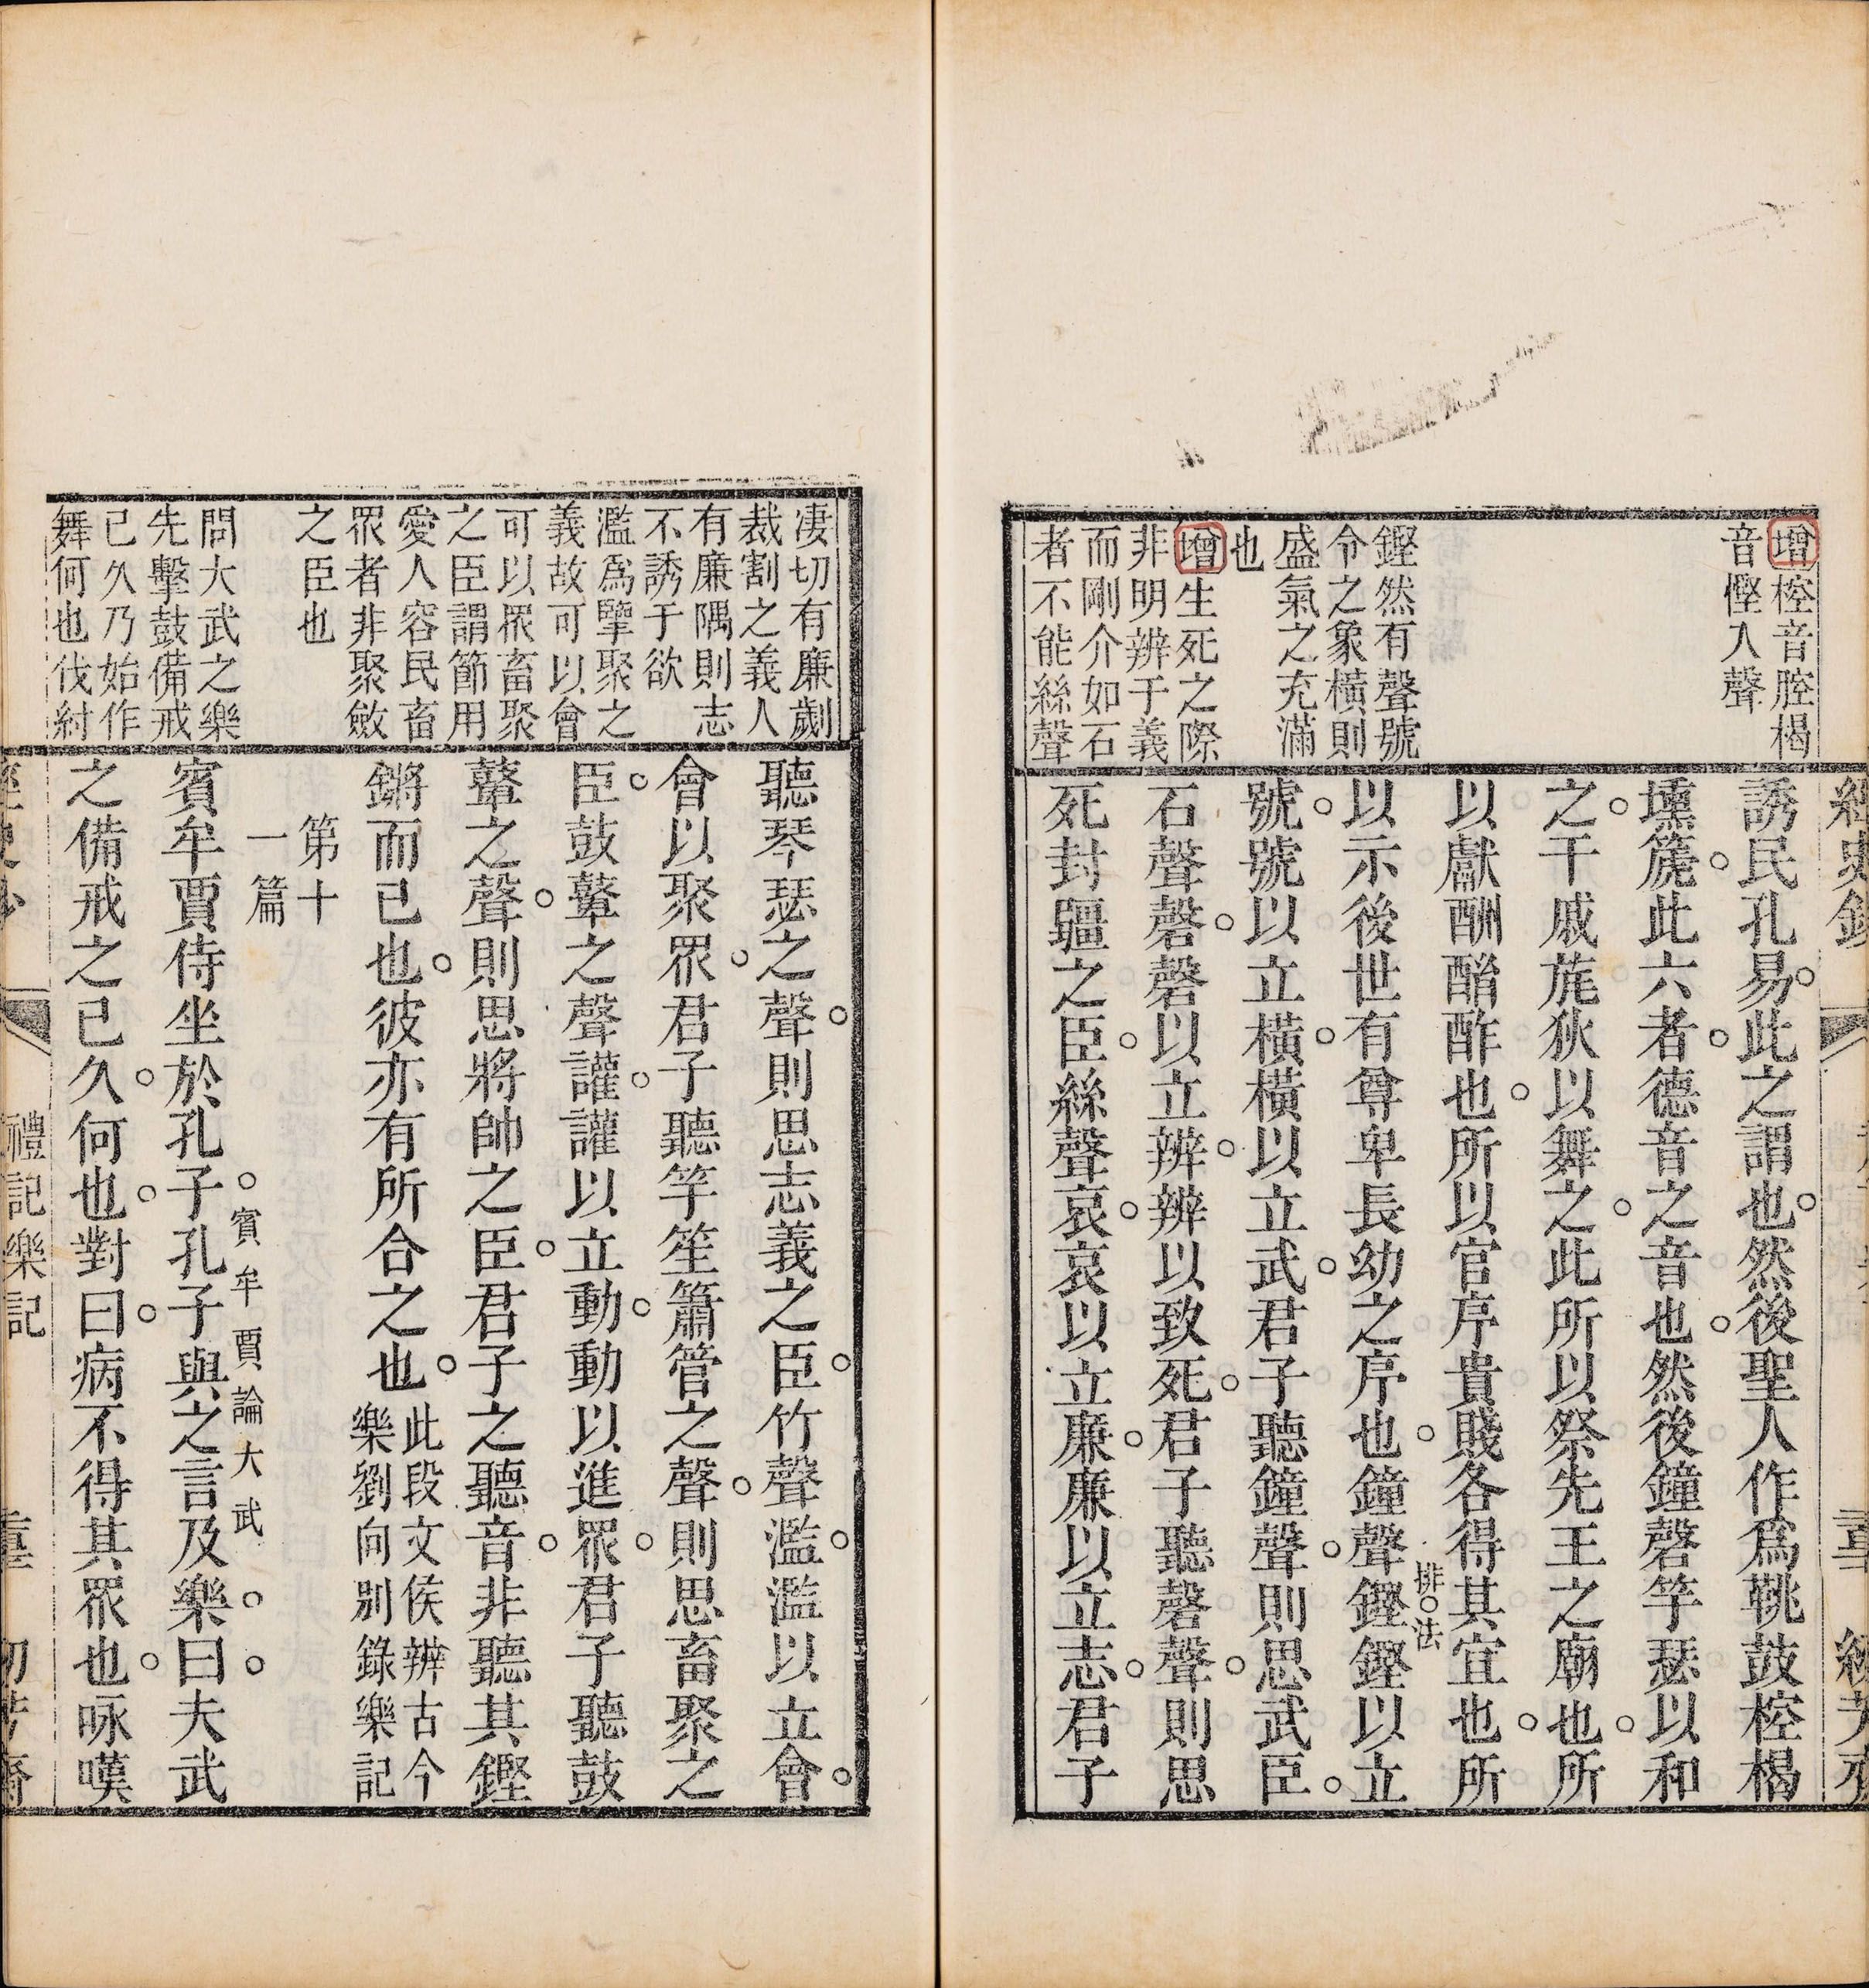 增椌音腔楬
音慳入聲
鏗然有聲號
令之象橫則
盛氣之充滿
也
增生死之際
非明辨于義
而剛介如石
者不能絲聲
誘民孔易此之謂也然後聖人作爲鞉鼓椌楬
壎篪此六者德音之音也然後鐘磬竽瑟以和
之干戚旄狄以舞之此所以祭先王之廟也所
以獻酬酳酢也所以官序貴賤各得其宜也所
以示後世有尊卑長幼之序也鐘聲鏗鏗以立
排法
號號以立橫橫以立武君子聽鐘聲則思武臣
石聲磬磬以立辨辨以致死君子聽磬聲則思
死封疆之臣絲聲哀哀以立廉廉以立志君子
凄切有廉劌
裁割之義人
有廉隅則志
不誘于欲
濫爲擥聚之
義故可以會
可以眾畜聚
之臣謂節用
愛人容民畜
眾者非聚斂
之臣也
問大武之樂
先擊鼓備戒
已久乃始作
舞何也伐紂
聽琴瑟之聲則思志義之臣竹聲濫濫以立會
會以聚眾君子聽竽笙簫管之聲則思畜聚之
臣鼓鼙之聲讙讙以立動動以進眾君子聽鼓
鼙之聲則思將帥之臣君子之聽音非聽其鏗
鏘而已也彼亦有所合之也
此段文侯辨古今
樂劉向别錄樂記
第十
一篇
賓牟賈論大武
賓牟賈侍坐於孔子孔子與之言及樂曰夫武
之備戒之已久何也對曰病不得其眾也咏嘆
禮記樂記